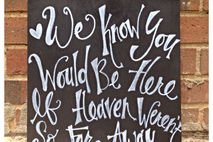 We Know You
Would Be Here
If Heaven Weren't
So Far Away